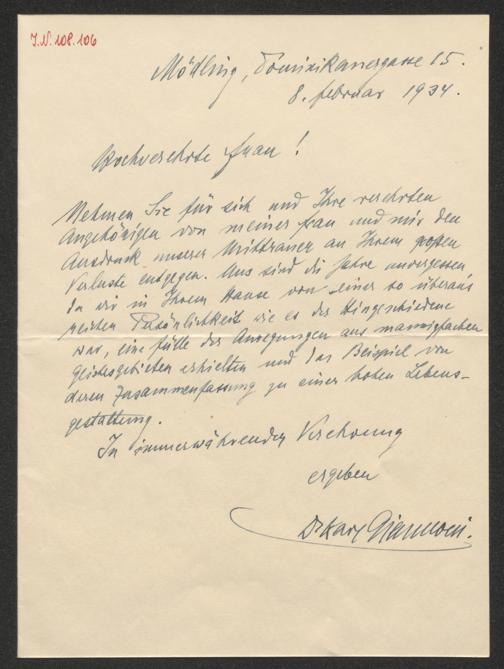 J.N. 108.106
Mödling, Dominikanergasse 15.
8. Februar 1934.
Hochverehrte Frau!
Nehmen Sie für sich und Ihre verehrten
Angehörigen von meiner Frau und mir den
Ausdruck unserer Mittrauer an Ihrem großen
Verluste entgegen. Uns sind die Jahre unvergessen,
da wir in Ihrem Hause von einer so überaus
reichen Persönlichkeit wie es der Hingeschiedene
war, eine Fülle der Anregungen aus mannigfachen
Geistesgebieten erhielten und das Beispiel von
deren Zusammenfassung zu einer hohen Lebens-
gestaltung.
In immerwährender Verehrung
ergeben
Dr Karl Giannoni.